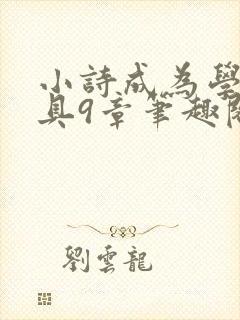 小詩成為學
具9章筆趣閣
劉雲龍